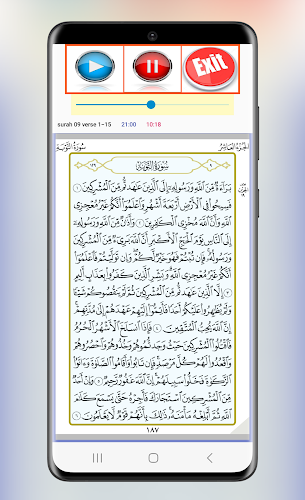 Exit
surah 09 verse 1~15 21:00 10:18
الجُزْءُ العَاشِرُ سُورَةُ التَّوْبَةِ
٩ سُورَةُ التَّوْبَةِ ١٢٩
بَرَآءَةٌ مِّنَ ٱللَّهِ وَرَسُولِهِۦٓ إِلَى ٱلَّذِينَ عَٰهَدتُّم مِّنَ ٱلْمُشْرِكِينَ ١
فَسِيحُوا۟ فِى ٱلْأَرْضِ أَرْبَعَةَ أَشْهُرٍ وَٱعْلَمُوٓا۟ أَنَّكُمْ غَيْرُ مُعْجِزِى
ٱللَّهِ وَأَنَّ ٱللَّهَ مُخْزِى ٱلْكَٰفِرِينَ ٢ وَأَذَٰنٌ مِّنَ ٱللَّهِ وَرَسُولِهِۦٓ
إِلَى ٱلنَّاسِ يَوْمَ ٱلْحَجِّ ٱلْأَكْبَرِ أَنَّ ٱللَّهَ بَرِىٓءٌ مِّنَ ٱلْمُشْرِكِينَ
وَرَسُولُهُۥ فَإِن تُبْتُمْ فَهُوَ خَيْرٌ لَّكُمْ وَإِن تَوَلَّيْتُمْ فَٱعْلَمُوٓا۟
أَنَّكُمْ غَيْرُ مُعْجِزِى ٱللَّهِ وَبَشِّرِ ٱلَّذِينَ كَفَرُوا۟ بِعَذَابٍ أَلِيمٍ
٣ إِلَّا ٱلَّذِينَ عَٰهَدتُّم مِّنَ ٱلْمُشْرِكِينَ ثُمَّ لَمْ يَنقُصُوكُمْ شَيْـًٔا
وَلَمْ يُظَٰهِرُوا۟ عَلَيْكُمْ أَحَدًا فَأَتِمُّوٓا۟ إِلَيْهِمْ عَهْدَهُمْ إِلَىٰ مُدَّتِهِمْ
إِنَّ ٱللَّهَ يُحِبُّ ٱلْمُتَّقِينَ ٤ فَإِذَا ٱنسَلَخَ ٱلْأَشْهُرُ ٱلْحُرُمُ
فَٱقْتُلُوا۟ ٱلْمُشْرِكِينَ حَيْثُ وَجَدتُّمُوهُمْ وَخُذُوهُمْ وَٱحْصُرُوهُمْ
وَٱقْعُدُوا۟ لَهُمْ كُلَّ مَرْصَدٍ فَإِن تَابُوا۟ وَأَقَامُوا۟ ٱلصَّلَوٰةَ وَءَاتَوُا۟
ٱلزَّكَوٰةَ فَخَلُّوا۟ سَبِيلَهُمْ إِنَّ ٱللَّهَ غَفُورٌ رَّحِيمٌ ٥ وَإِنْ أَحَدٌ
مِّنَ ٱلْمُشْرِكِينَ ٱسْتَجَارَكَ فَأَجِرْهُ حَتَّىٰ يَسْمَعَ كَلَٰمَ
ٱللَّهِ ثُمَّ أَبْلِغْهُ مَأْمَنَهُۥ ذَٰلِكَ بِأَنَّهُمْ قَوْمٌ لَّا يَعْلَمُونَ ٦
١٨٧